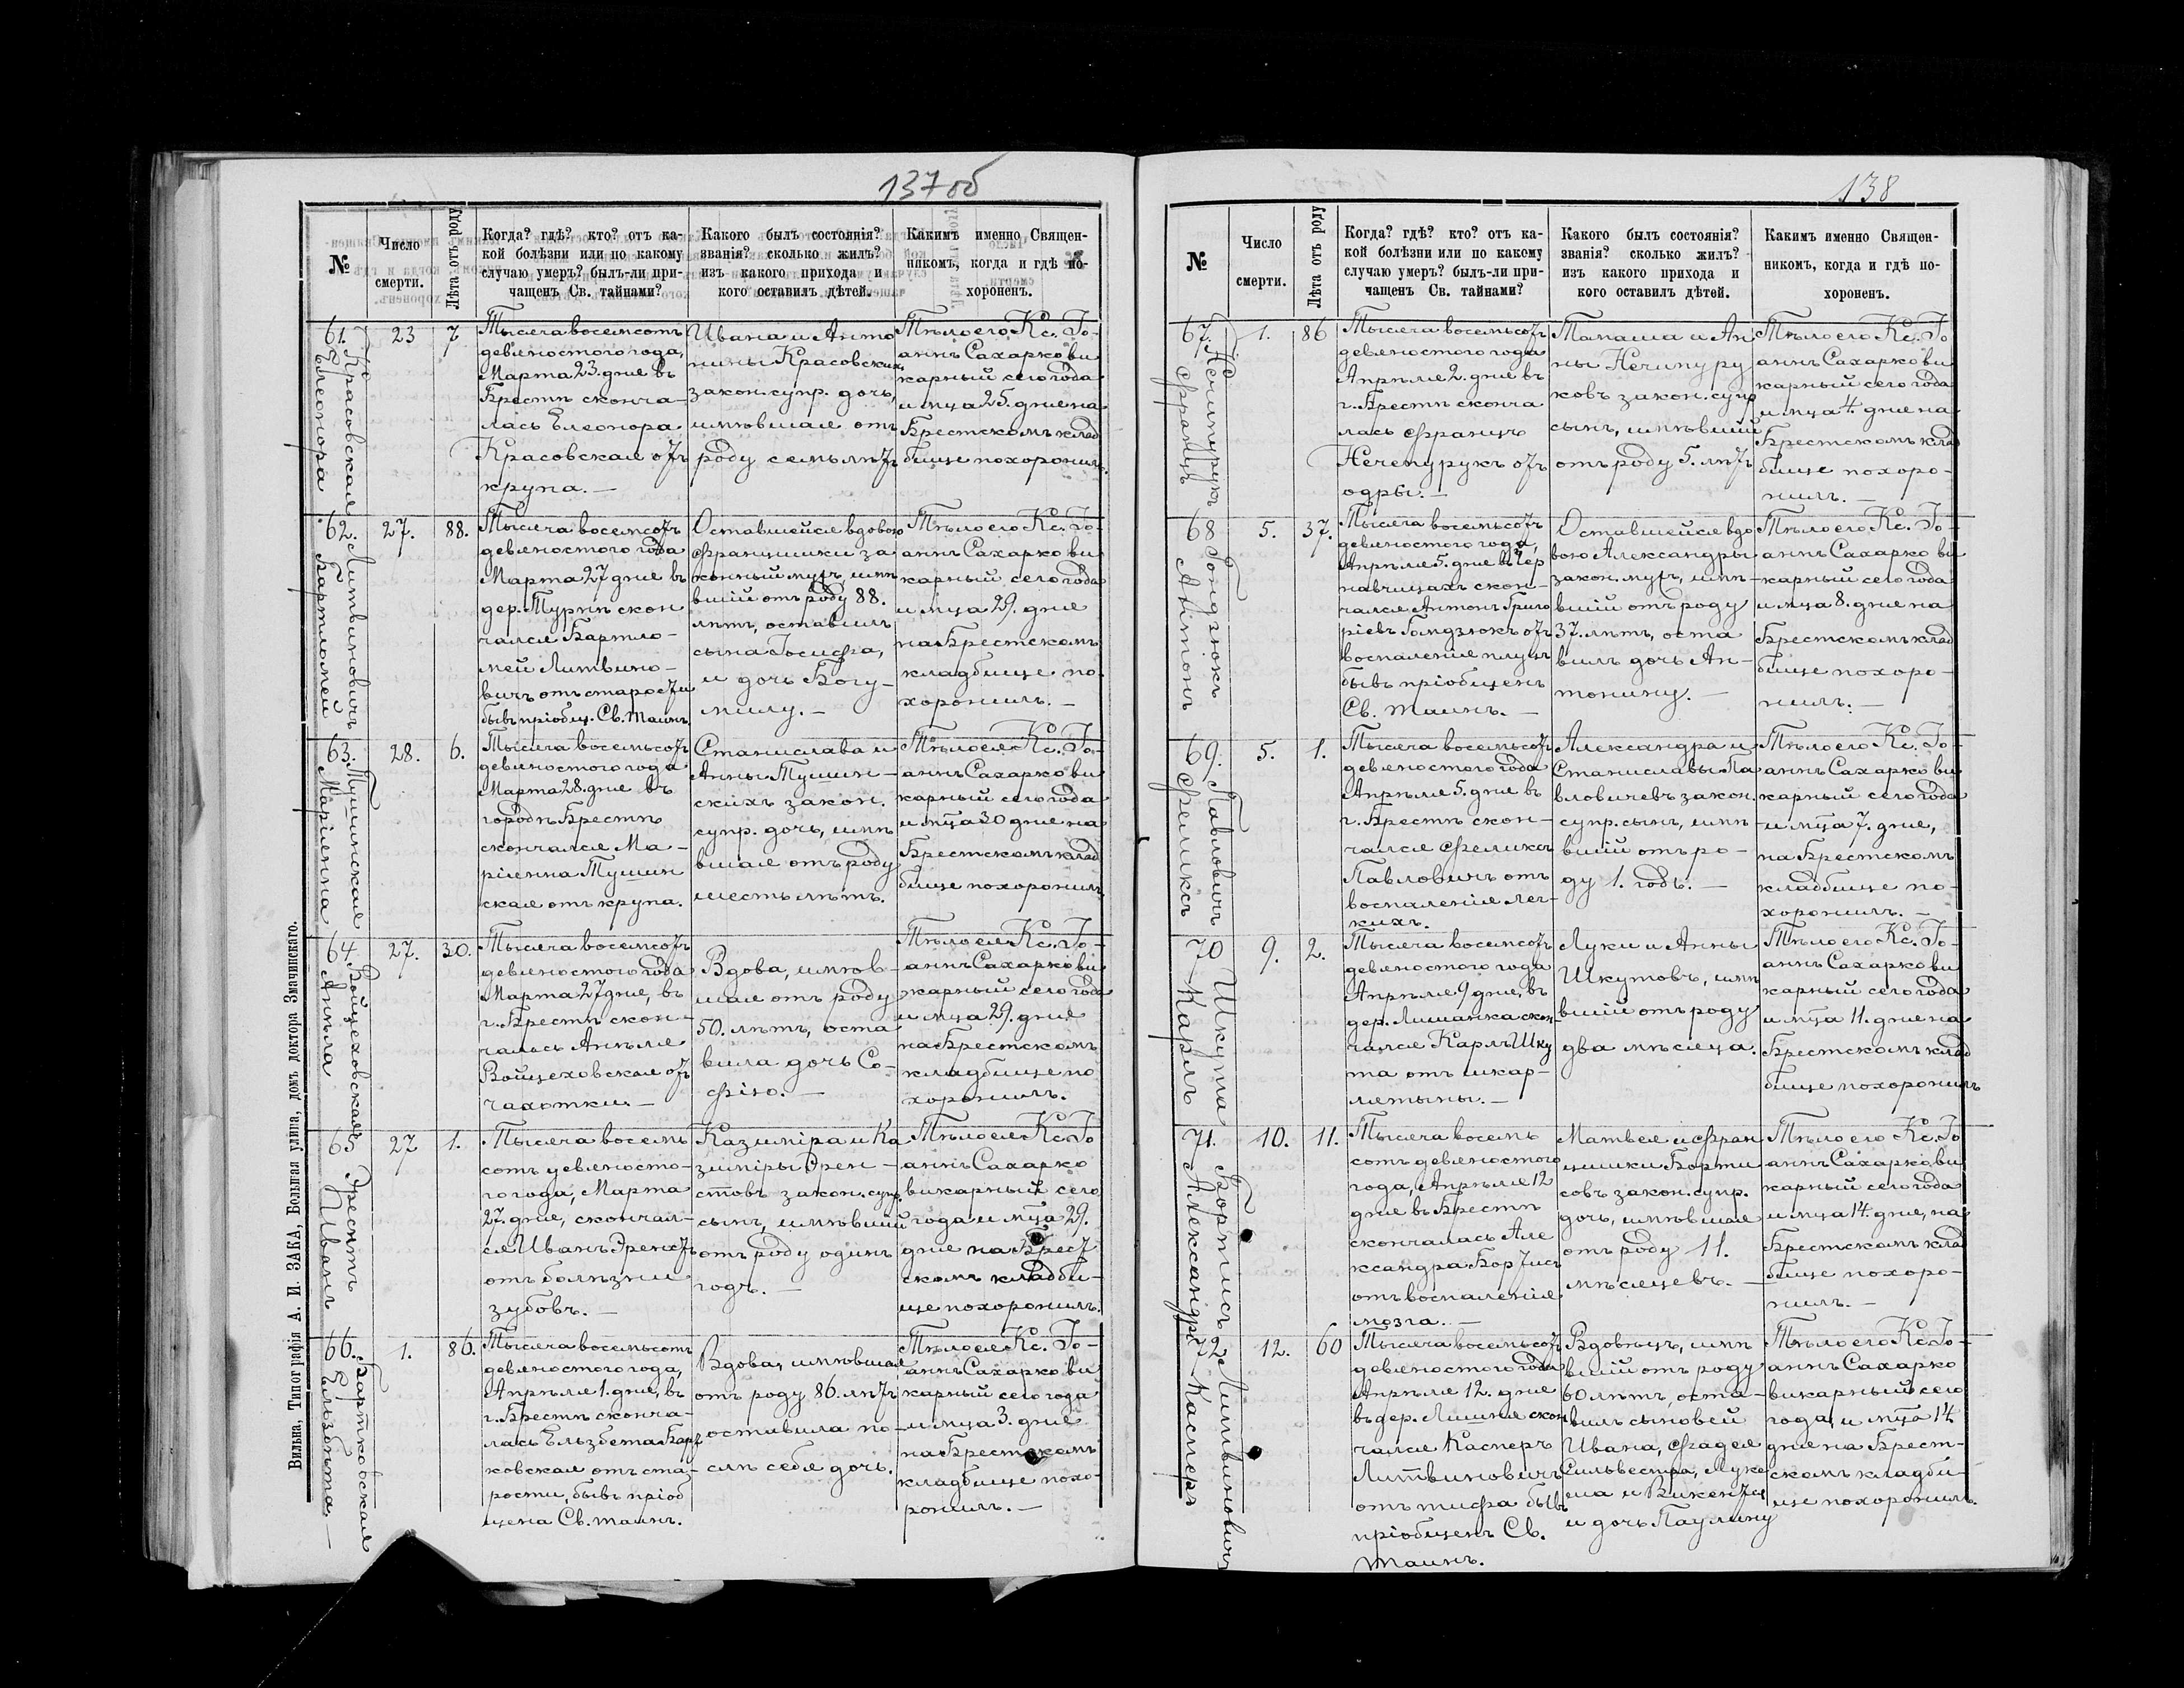 137 об
№
Число смерти.
Лѣта отъ роду
Когда? гдѣ? кто? отъ ка-
кой болѣзни или по какому
случаю умеръ? былъ-ли при-
чащенъ Св. тайнами?
Какого былъ состоянія?
званія? сколько жилъ?
изъ какого прихода и
кого оставилъ дѣтей.
Какимъ именно Священ-
никомъ, когда и гдѣ по-
хороненъ.
61.
Красовская
Елеонора
23
7
Тысяча восемсотъ
девяностого года,
Марта 23. дня въ
Брестѣ сконча-
лась Елеонора
Красовская отъ
крупа. —
Ивана и Анто
нины Красовскихъ
закон. супр. дочь,
имѣвшая отъ
роду семь лѣтъ
Тѣло его Кс. Іо-
аннъ Сахарко ви
карный сего года
и мца 25. дня на
Брестскомъ клад
бище похоронилъ.
62.
Литвиновичъ
Бартломей
27.
88.
Тысяча восемсотъ
девяностого года
Марта 27 дня въ
дер. Турнѣ скон
чался Бартло-
мей Литвино-
вичъ отъ старости
бывъ пріобщ. Св. Таинъ.
Оставшейся вдовою
Францишки за
конный мужъ, имѣ
вшій отъ роду 88.
лѣтъ, оставилъ
сына Іосифа,
и дочь Богу-
милу. —
Тѣло его Кс. Іо-
аннъ Сахарко ви
карный сего года
и мца 29. дня
на Брестскомъ
кладбище по-
хоронилъ. —
63.
Тушинская
Маріенна
28.
6.
Тысяча восемьсотъ
девяностого года
Марта 28. дня въ
городѣ Брестѣ
скончался Ма-
ріенна Тушин
ская отъ крупа.
Станислава и
Анны Тушин-
скихъ закон.
супр. дочь, имѣ
вшая отъ роду
шесть лѣтъ.
Тѣло ея Кс. Іо-
аннъ Сахарко ви
карный сего года
и мца 30 дня на
Брестскомъ клад
бище похоронилъ.
64.
Войцеховская
Анѣла
27.
30.
Тысяча восемсотъ
девяностого года
Марта 27 дня, въ
г. Брестѣ скон-
чалась Анѣля
Войцеховская отъ
чахотки. —
Вдова, имѣв-
шая отъ роду
50. лѣтъ, оста
вила дочь Со-
фію. —
Тѣло ея Кс. Іо-
аннъ Сахарко ви
карный сего года
и мца 29. дня
на Брестскомъ
кладбище по
хоронилъ.
65
Эренстъ
Иванъ
27
1.
Тысяча восемь
сотъ девяносто-
го года, Марта
27. дня, скончал-
ся Иванъ Эренстъ
отъ болѣзни
зубовъ. —
Казиміра и Ка
зиміры Эрен-
стовъ закон. супр.
сынъ, имѣвшій
отъ роду одинъ
годъ. —
Тѣло ея Кс. Іо
аннъ Сахарко
викарный сего
года и мца 29.
дня на Брест
скомъ кладби-
ще похоронилъ.
66.
Бартковская
Ельзбѣта —
1.
86.
Тысяча восемьсотъ
девяностого года,
Апрѣля 1. дня, въ
г. Брестѣ сконча-
лась Ельзбета Барт
ковская отъ ста-
рости, бывъ пріоб
щена Св. таинъ.
Вдова, имѣвшая
отъ роду 86. лѣтъ
оставила по-
слѣ себя дочь.
Тѣло ея Кс. Іо-
аннъ Сахарко ви
карный сего года
и мца 3. дня
на Брестскомъ
кладбище похо-
ронилъ. —
Вильна, Типографія А. И. ЗАКА, Большая улица, домъ доктора Змачинскаго.
138
№
Число смерти.
Лѣта отъ роду
Когда? гдѣ? кто? отъ ка-
кой болѣзни или по какому
случаю умеръ? былъ-ли при-
чащенъ Св. тайнами?
Какого былъ состоянія?
званія? сколько жилъ?
изъ какого прихода и
кого оставилъ дѣтей.
Какимъ именно Священ-
никомъ, когда и гдѣ по-
хороненъ.
67.
Нечипурукъ
Францъ
1.
86
Тысяча восемьсотъ
девяностого года
Апрѣля 2. дня въ
г. Брестѣ сконча
лась Францъ
Нечепурукъ отъ
одры. —
и Ан
ны Нечипуру
ковъ закон. супр
сынъ, имѣвшій
отъ роду 5. лѣтъ
Тѣло его Кс. Іо
аннъ Сахарко ви
карный сего года
и мца 4. дня на
Брестскомъ клад
бище похоро-
нилъ. —
68
Гондзюкъ
Антонъ
5.
37.
Тысяча восемьсотъ
девяностого года,
Апрѣля 5. дня въ Чер
навчицахъ скон-
чался Антонъ Григо
ріевъ Гондзюкъ отъ
воспаленіе плуцъ
бывъ пріобщенъ
Св. таинъ. —
Оставшейся вдо
вою Александры
закон. мужъ, имѣ-
вшій отъ роду
37. лѣтъ, оста
вилъ дочь Ан-
тонину. —
Тѣло его Кс. Іо-
аннъ Сахарко ви
карный сего года
и мца 8. дня на
Брестскомъ клад
бище похоро-
нилъ. —
69.
Павловичъ
Феликсъ
5.
1.
Тысяча восемьсотъ
девяностого года
Апрѣля 5. дня въ
г. Брестѣ скон-
чался Феликсъ
Павловичъ отъ
воспаленія лег-
кихъ.
Александра и
Станиславы Па
вловичевъ закон.
супр. сынъ, имѣ-
вшій отъ ро-
ду 1. годъ. —
Тѣло его Кс. Іо-
аннъ Сахарко ви
карный сего года
и мца 7. дня,
на Брестскомъ
кладбище по-
хоронилъ. —
70
Шкута
Карлъ
9.
2.
Тысяча восемсотъ
девяностого года
Апрѣля 9 дня, въ
дер. скон-
чался Карлъ Шку
та отъ шкар-
летыны. —
Луки и Анны
Шкутовъ, имѣ
вшій отъ роду
два мѣсяца.
Тѣло его Кс. Іо-
аннъ Сахарко ви
карный сего года
и мца 11. дня на
Брестскомъ клад
бище похоронилъ
71.
Бортисъ
Александра
10.
11.
Тысяча восемь
сотъ девяностого
года, Апрѣля 12
дня въ Брестѣ
скончалась Але
ксандра Бортисъ
отъ воспаленія
мозга. —
Матвея и Фран
цишки Борти
совъ закон. супр.
дочь, имѣвшая
отъ роду 11.
мѣсяцевъ. —
Тѣло его Кс. Іо
аннъ Сахарко ви
карный сего года
и мца 14. дня, на
Брестскомъ клад
бище похоро-
нилъ. —
72
Литвиновичъ
Касперъ
12.
60
Тысяча восемьсотъ
девяностого года
Апрѣля 12. дня
въ дер. скон
чался Касперъ
Литвиновичъ
отъ тифа бывъ
пріобщенъ Св.
таинъ.
Вдовецъ, имѣ
вшій отъ роду
60 лѣтъ, оста-
вилъ сыновей
Ивана, Фадея
Сильвестра,
и Викентія
и дочь Паулину
Тѣло его Кс. Іо-
аннъ Сахарко
викарный сего
года и мца 14
дня на Брест-
скомъ кладби-
ще похоронилъ.